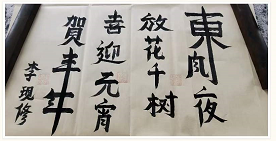 東風夜
放花千树
喜迎元宵
賀丰年
李現修